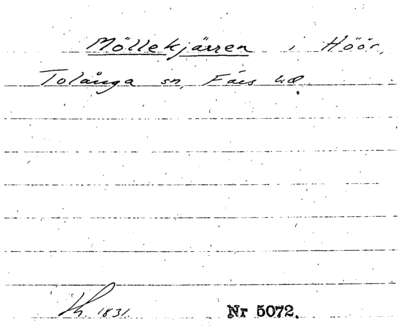 Möllekjärren i Höör,
Tolånga sn, Färs hd.
Kh. 1831. Nr 5072.